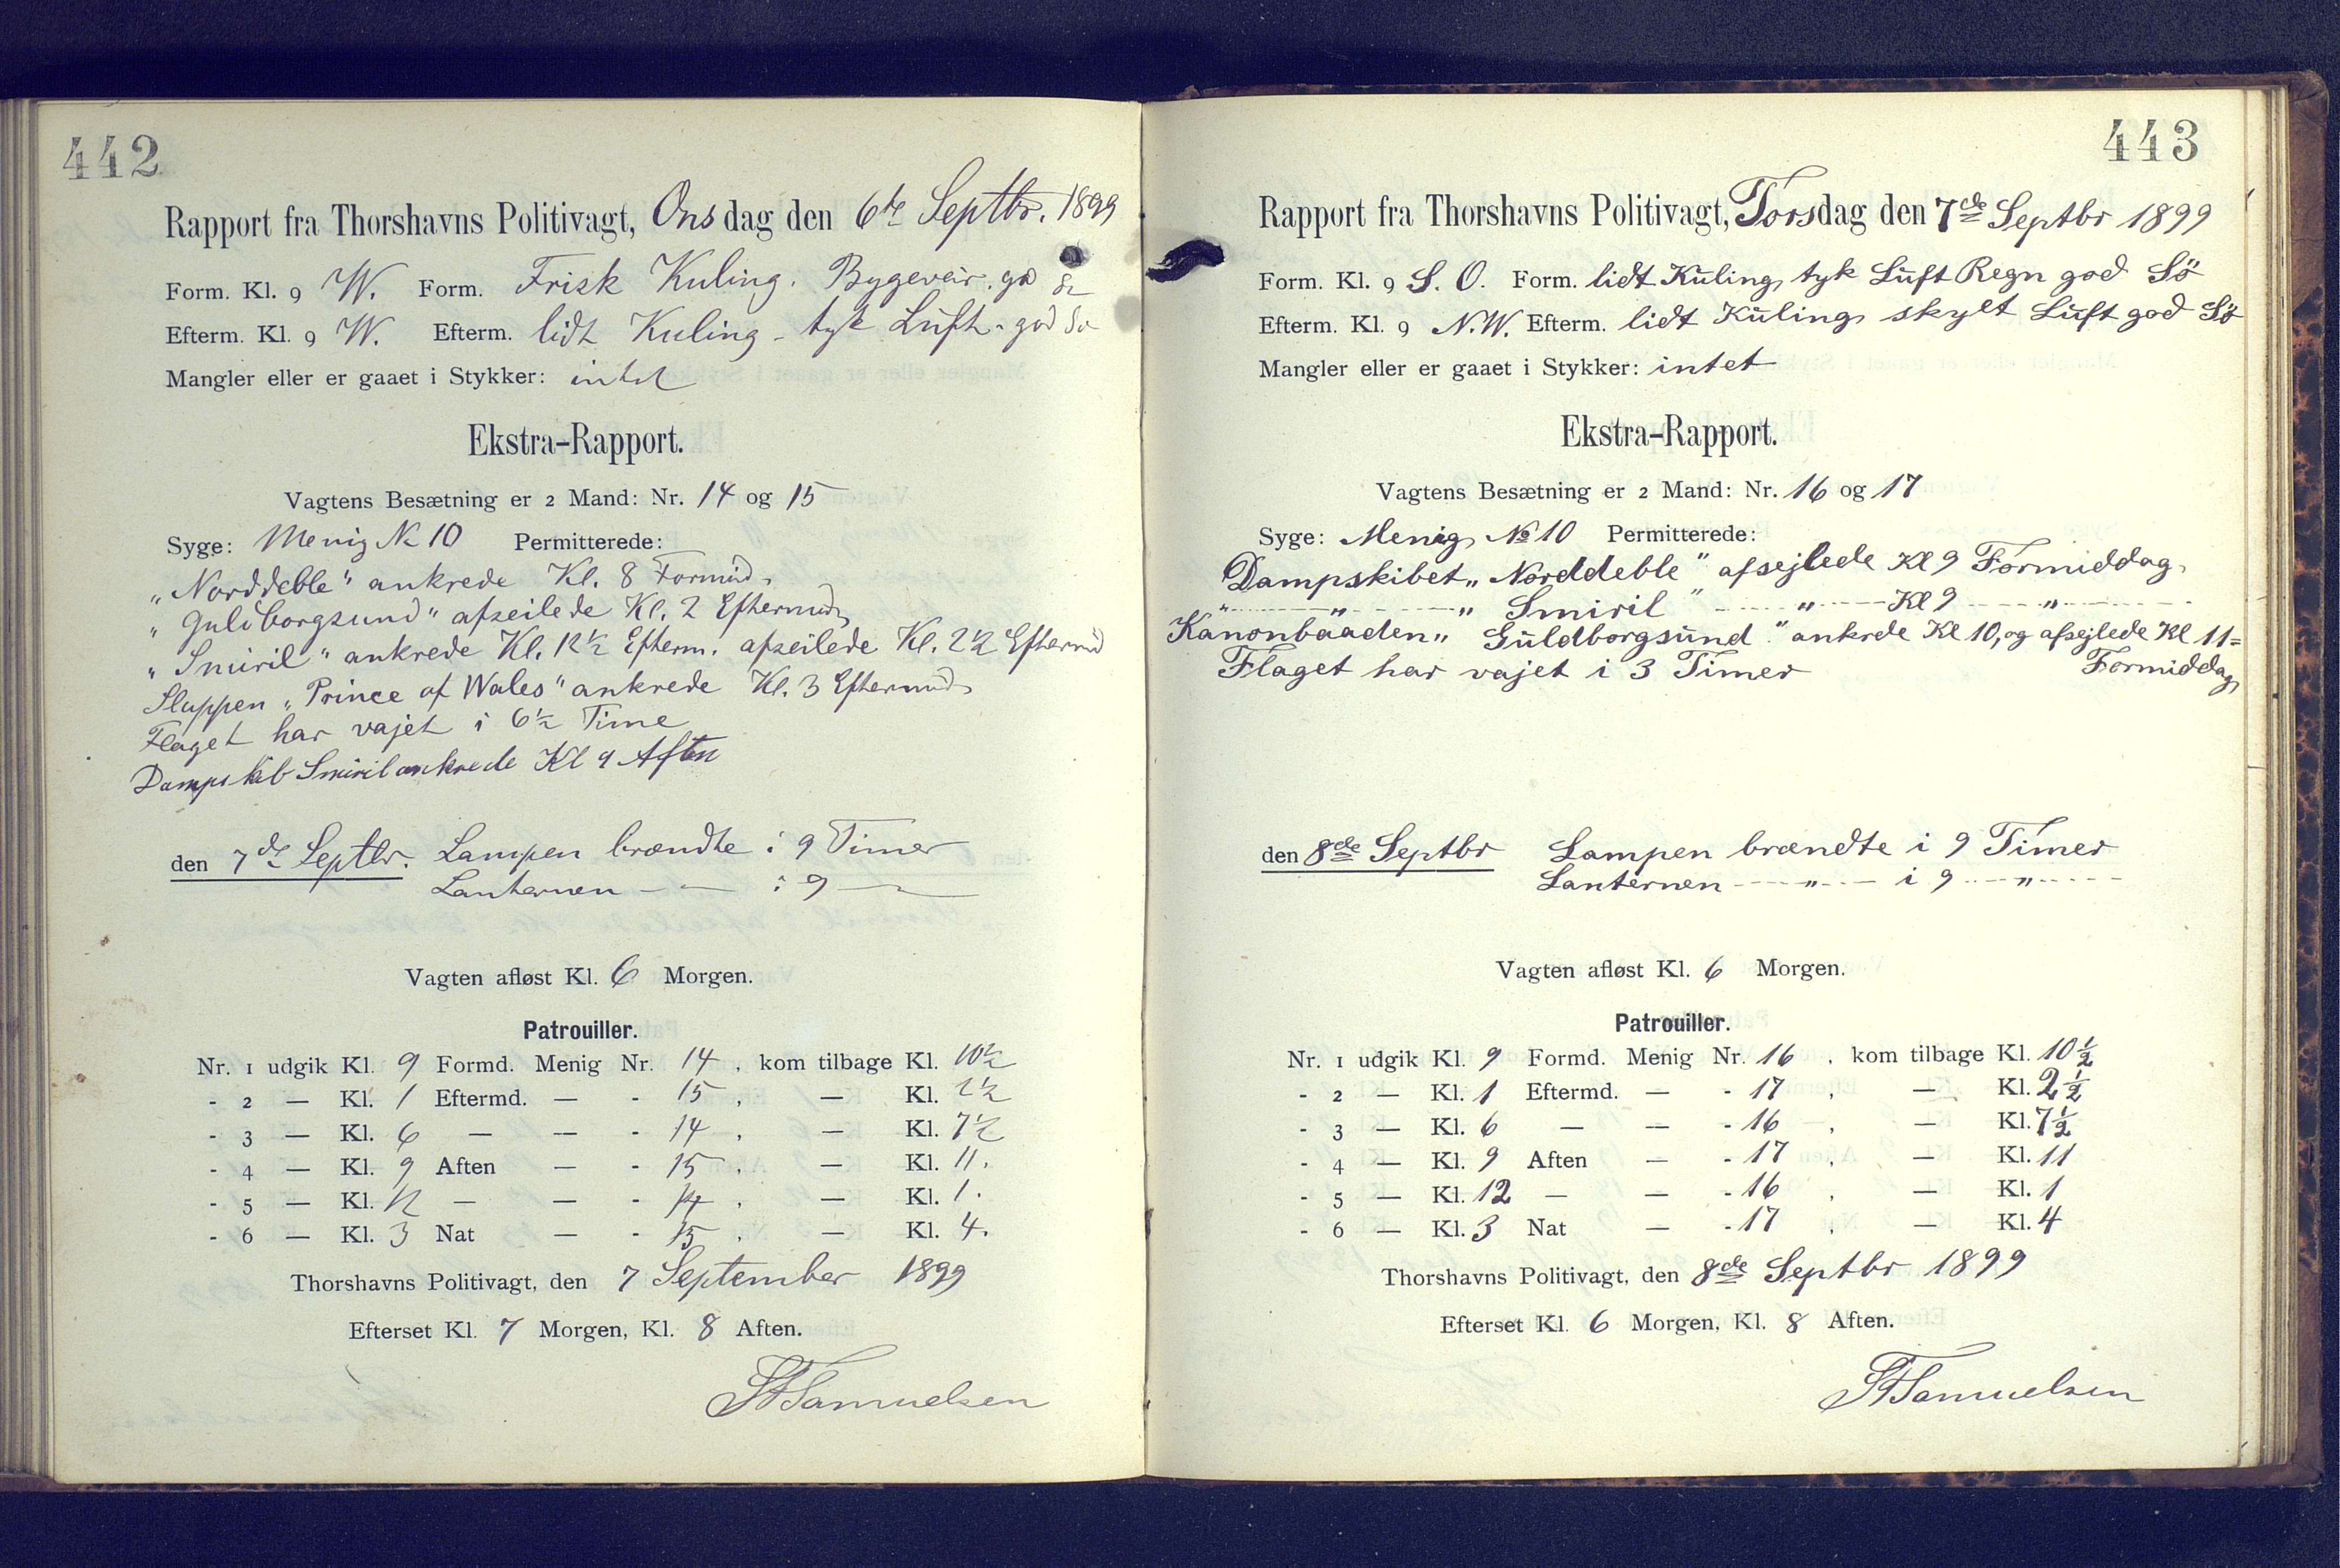 442
Rapport fra Thorshavns Politivagt, Onsdag den 6te Septbr. 1899
Form. Kl. 9 W. Form. Frisk Kuling. Bygeveir. go
Efterm. Kl. 9 W. Efterm. lidt Kuling - tyk Luft - god Sø
Mangler eller er gaaet i Stykker: intet
Ekstra-Rapport.
Vagtens Besætning er 2 Mand: Nr. 14 og 15
Syge: Menig No 10 Permitterede:
„Norddeble" ankrede Kl. 8 Formid.
„Guldborgsund" afseilede Kl. 2 Eftermid.
„Smiril" ankrede Kl. 12½ Efterm. afseilede Kl. 2½ Eftermd
Sluppen „Prince of Wales" ankrede Kl. 3 Eftermid.
Flaget har vajet i 6½ Time
Dampskib Smiril ankrede Kl 9 Aften
den 7de Septbr. Lampen brændte i 9 Timer
Lanternen — — i 9 —
Vagten afløst Kl. 6 Morgen.
Patrouiller.
Nr. 1 udgik Kl. 9 Formd. Menig Nr. 14, kom tilbage Kl. 10½
- 2 — Kl. 1 Eftermd. — - 15, — Kl. 2½
- 3 — Kl. 6 — — - 14, — Kl. 7½
- 4 — Kl. 9 Aften — - 15, — Kl. 11.
- 5 — Kl. 12 — — - 14, — Kl. 1.
- 6 — Kl. 3 Nat — - 15, — Kl. 4.
Thorshavns Politivagt, den 7 September 1899
Efterset Kl. 7 Morgen, Kl. 8 Aften.
Samuelsen
443
Rapport fra Thorshavns Politivagt, Torsdag den 7de Septbr 1899
Form. Kl. 9 S. O. Form. lidt Kuling, tyk Luft Regn god Sö
Efterm. Kl. 9 N.W. Efterm. lidt Kuling skylt Luft god Sö
Mangler eller er gaaet i Stykker: intet
Ekstra-Rapport.
Vagtens Besætning er 2 Mand: Nr. 16 og 17
Syge: Menig No 10 Permitterede:
Dampskibet „Norddeble" afsejlede Kl 9 Formiddag.
" — " — „Smiril" — " — Kl 9 — " —
Kanonbaaden „Guldborgsund." ankrede Kl 10, og afsejlede Kl 11=
Formiddag
Flaget har vajet i 3 Timer
den 8de Septbr Lampen brændte i 9 Timer
Lanternen — " — i 9 — " —
Vagten afløst Kl. 6 Morgen.
Patrouiller.
Nr. 1 udgik Kl. 9 Formd. Menig Nr. 16, kom tilbage Kl. 10½
- 2 — Kl. 1 Eftermd. — - 17, — Kl. 2½
- 3 — Kl. 6 — — - 16, — Kl. 7½
- 4 — Kl. 9 Aften — - 17, — Kl. 11
- 5 — Kl. 12 — — - 16, — Kl. 1
- 6 — Kl. 3 Nat — - 17, — Kl. 4
Thorshavns Politivagt, den 8de Septbr 1899
Efterset Kl. 6 Morgen, Kl. 8 Aften.
Samuelsen